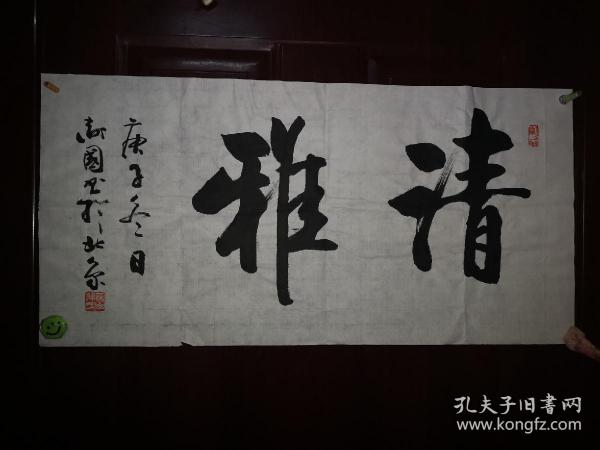 清雅
庚子冬日
國书於北京
孔夫子旧书网
www.kongfz.com